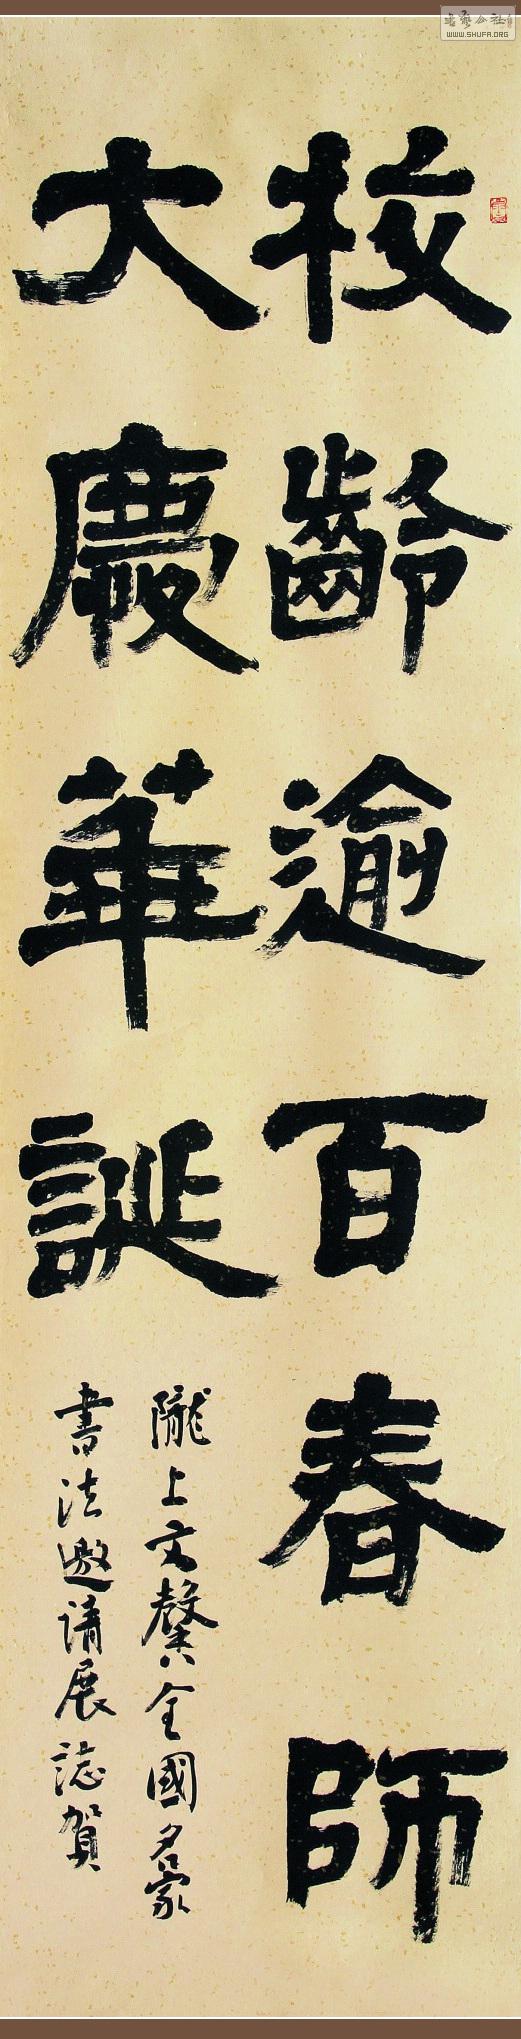 校齡逾百春師
大慶華誕
隴上文馨全國名家
書法邀請展誌賀
WWW.SHUFA.ORG